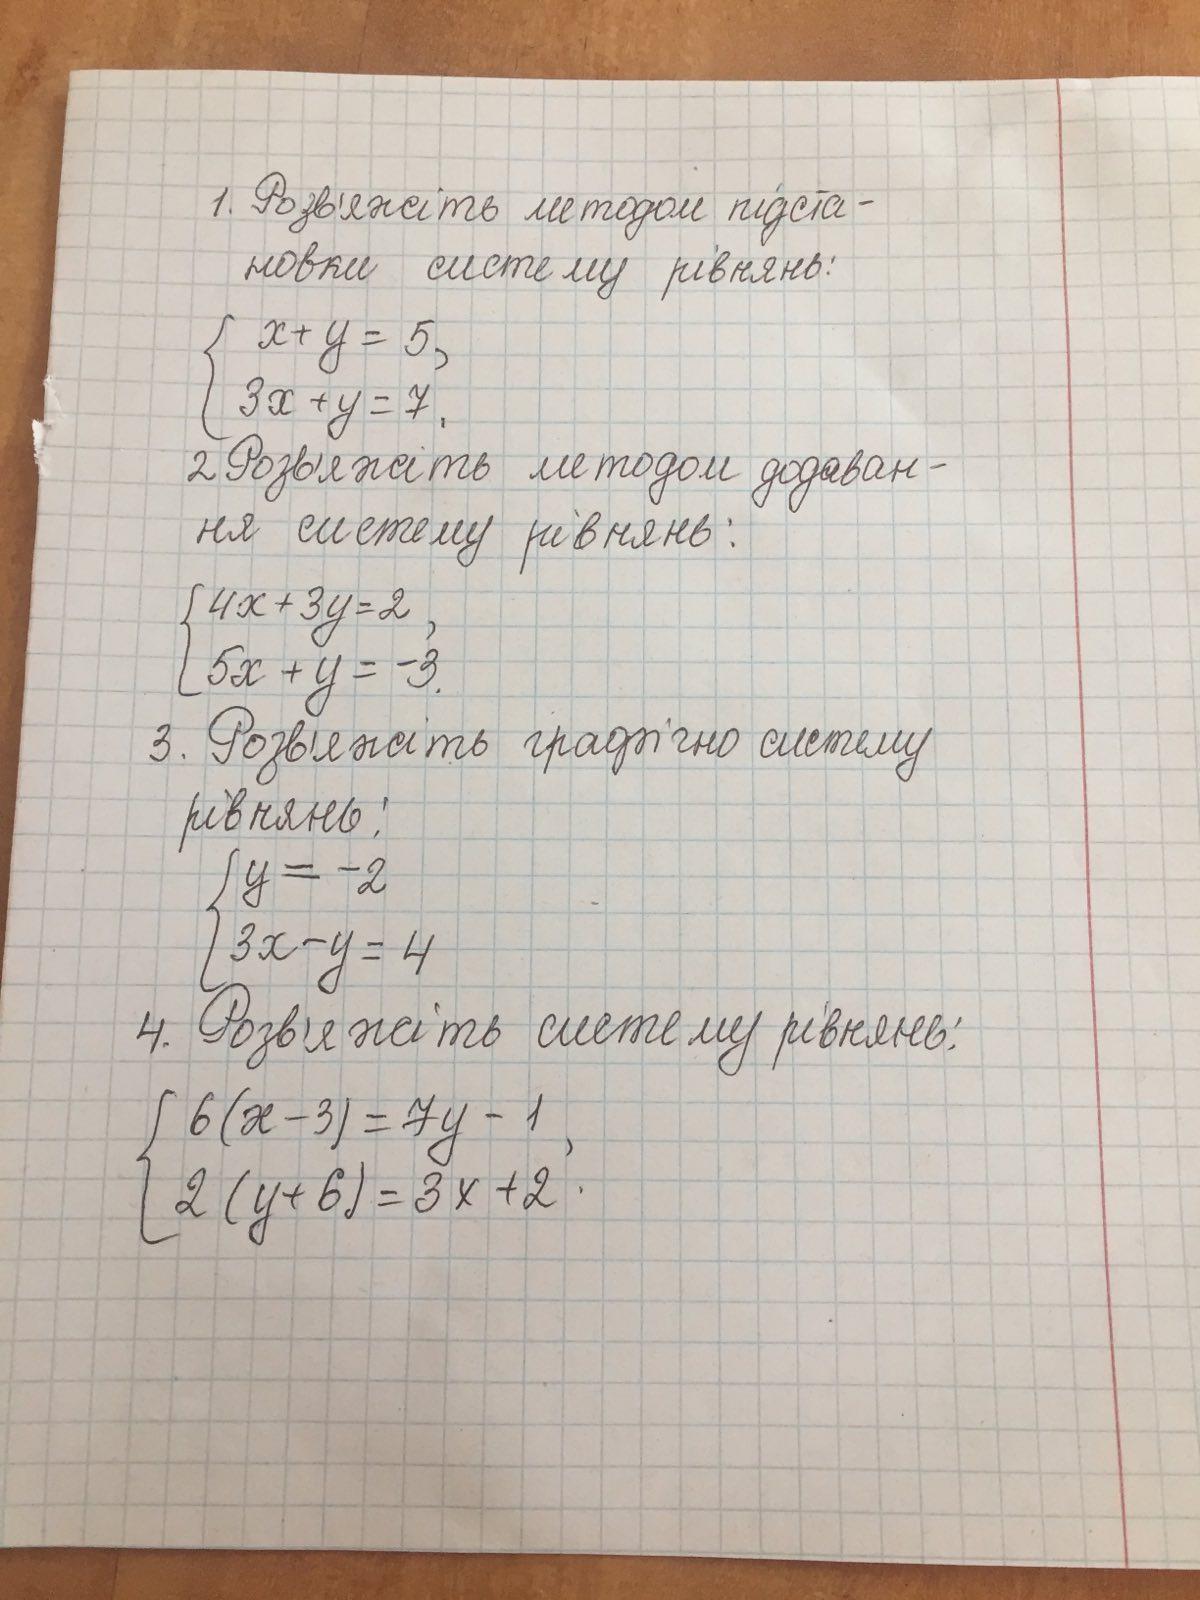 1. Розв'яжіть методом підста-
новки систему рівнянь:
x + y = 5,
3x + y = 7.
2 Розв'яжіть методом додаван-
ня систему рівнянь:
4x + 3y = 2,
5x + y = -3.
3. Розв'яжіть графічно систему
рівнянь:
y = -2
3x - y = 4
4. Розв'яжіть систему рівнянь:
6(x - 3) = 7y - 1,
2(y + 6) = 3x + 2.